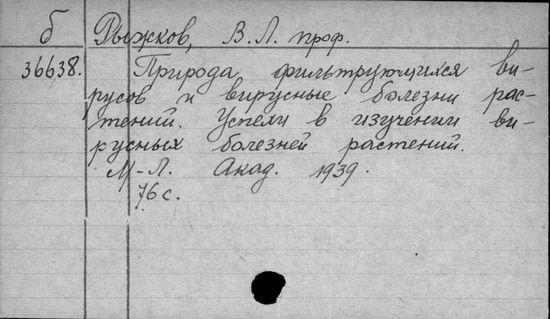 б Рыжков, В.Л. проф.
36638. Природа фильтрующихся ви-
русов и вирусные болезни рас-
тений. Успехи в изучении ви-
русных болезней растений.
М-Л. Акад. 1939.
76 с.